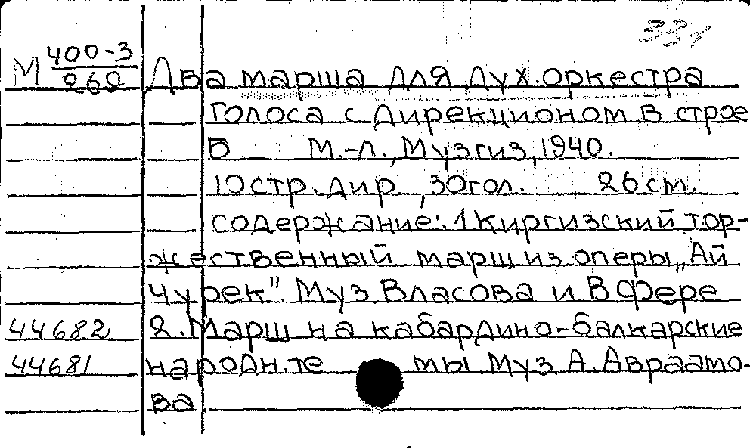 331
М 400-3/262 Два марша для дух. оркестра
голоса с дирекционом в строе
B М.-л., Музгиз, 1940.
10 стр. дир , 30 гол. 26 см.
содержание: 1 Киргизский тор-
жественный марш из оперы „Ай
чурек" Муз Власова и В Фере
44682 2. Марш на кабардино-балкарские
44681 народн. те мы Муз А. Авраамо-
ва